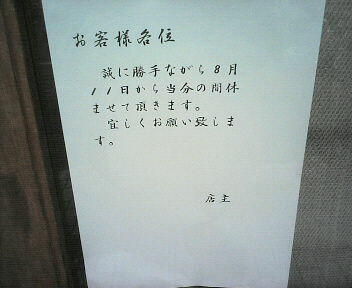 お客様各位
誠に勝手ながら8月
11日から当分の間休
ませて頂きます。
宜しくお願い致しま
す。
店主